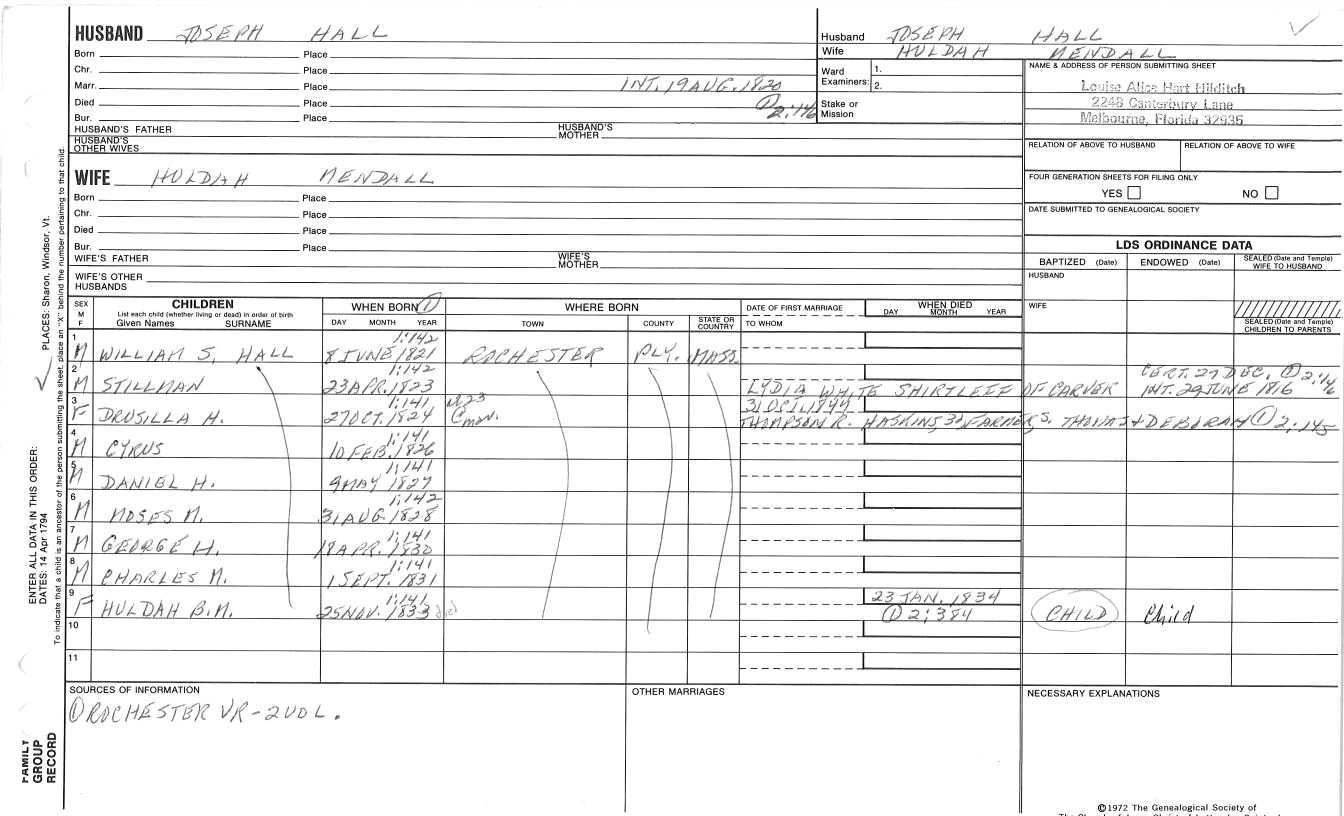 HUSBAND JOSEPH HALL
Born Place
Chr. Place
Marr. Place INT. 19 AUG. 1820
Died Place ① 2:146
Bur. Place
HUSBAND'S FATHER HUSBAND'S MOTHER
HUSBAND'S OTHER WIVES
Husband JOSEPH HALL
Wife HULDAH MENDALL
Ward Examiners: 1.
2.
Stake or Mission
NAME & ADDRESS OF PERSON SUBMITTING SHEET
Louise Alice Hart Hilditch
2248 Canterbury Lane
Melbourne, Florida 32935
RELATION OF ABOVE TO HUSBAND RELATION OF ABOVE TO WIFE
FOUR GENERATION SHEETS FOR FILING ONLY
YES NO
DATE SUBMITTED TO GENEALOGICAL SOCIETY
WIFE HULDAH MENDALL
Born Place
Chr. Place
Died Place
Bur. Place
WIFE'S FATHER WIFE'S MOTHER
WIFE'S OTHER HUSBANDS
LDS ORDINANCE DATA
BAPTIZED (Date) ENDOWED (Date) SEALED (Date and Temple) WIFE TO HUSBAND
HUSBAND
WIFE
SEALED (Date and Temple) CHILDREN TO PARENTS
SEX M F
CHILDREN
List each child (whether living or dead) in order of birth
Given Names SURNAME
WHEN BORN ①
DAY MONTH YEAR
WHERE BORN
TOWN COUNTY STATE OR COUNTRY
DATE OF FIRST MARRIAGE
TO WHOM
WHEN DIED
DAY MONTH YEAR
1 1:142
M WILLIAM S. HALL 8 JUNE 1821 ROCHESTER PLY. MASS.
2 1:142 CERT. 27 DEC. ① 2:146
M STILLMAN 23 APR. 1823 LYDIA WHITE SHIRTLEFF OF CARVER INT. 29 JUNE 1816
3 1:141 31 OCT. 1844
F DRUSILLA H. 27 OCT. 1824 THOMPSON R. HASKINS, 3d FARMER, S. THOMAS & DEBORAH ① 2:145
4 1:141
M CYRUS 10 FEB. 1826
5 1:141
M DANIEL H. 9 MAY 1827
6 1:142
M MOSES M. 31 AUG. 1828
7 1:141
M GEORGE H. 18 APR. 1830
8 1:141
M CHARLES M. 1 SEPT. 1831
9 1:141 23 JAN. 1834
F HULDAH B.M. 25 NOV. 1833 ① 2:384 CHILD Child
10
11
SOURCES OF INFORMATION
① ROCHESTER VR-2VOL.
OTHER MARRIAGES
NECESSARY EXPLANATIONS
©1972 The Genealogical Society of
FAMILY GROUP RECORD
ENTER ALL DATA IN THIS ORDER:
DATES: 14 Apr 1794
PLACES: Sharon, Windsor, Vt.
To indicate that a child is an ancestor of the person submitting the sheet, place an "X" behind the number pertaining to that child.